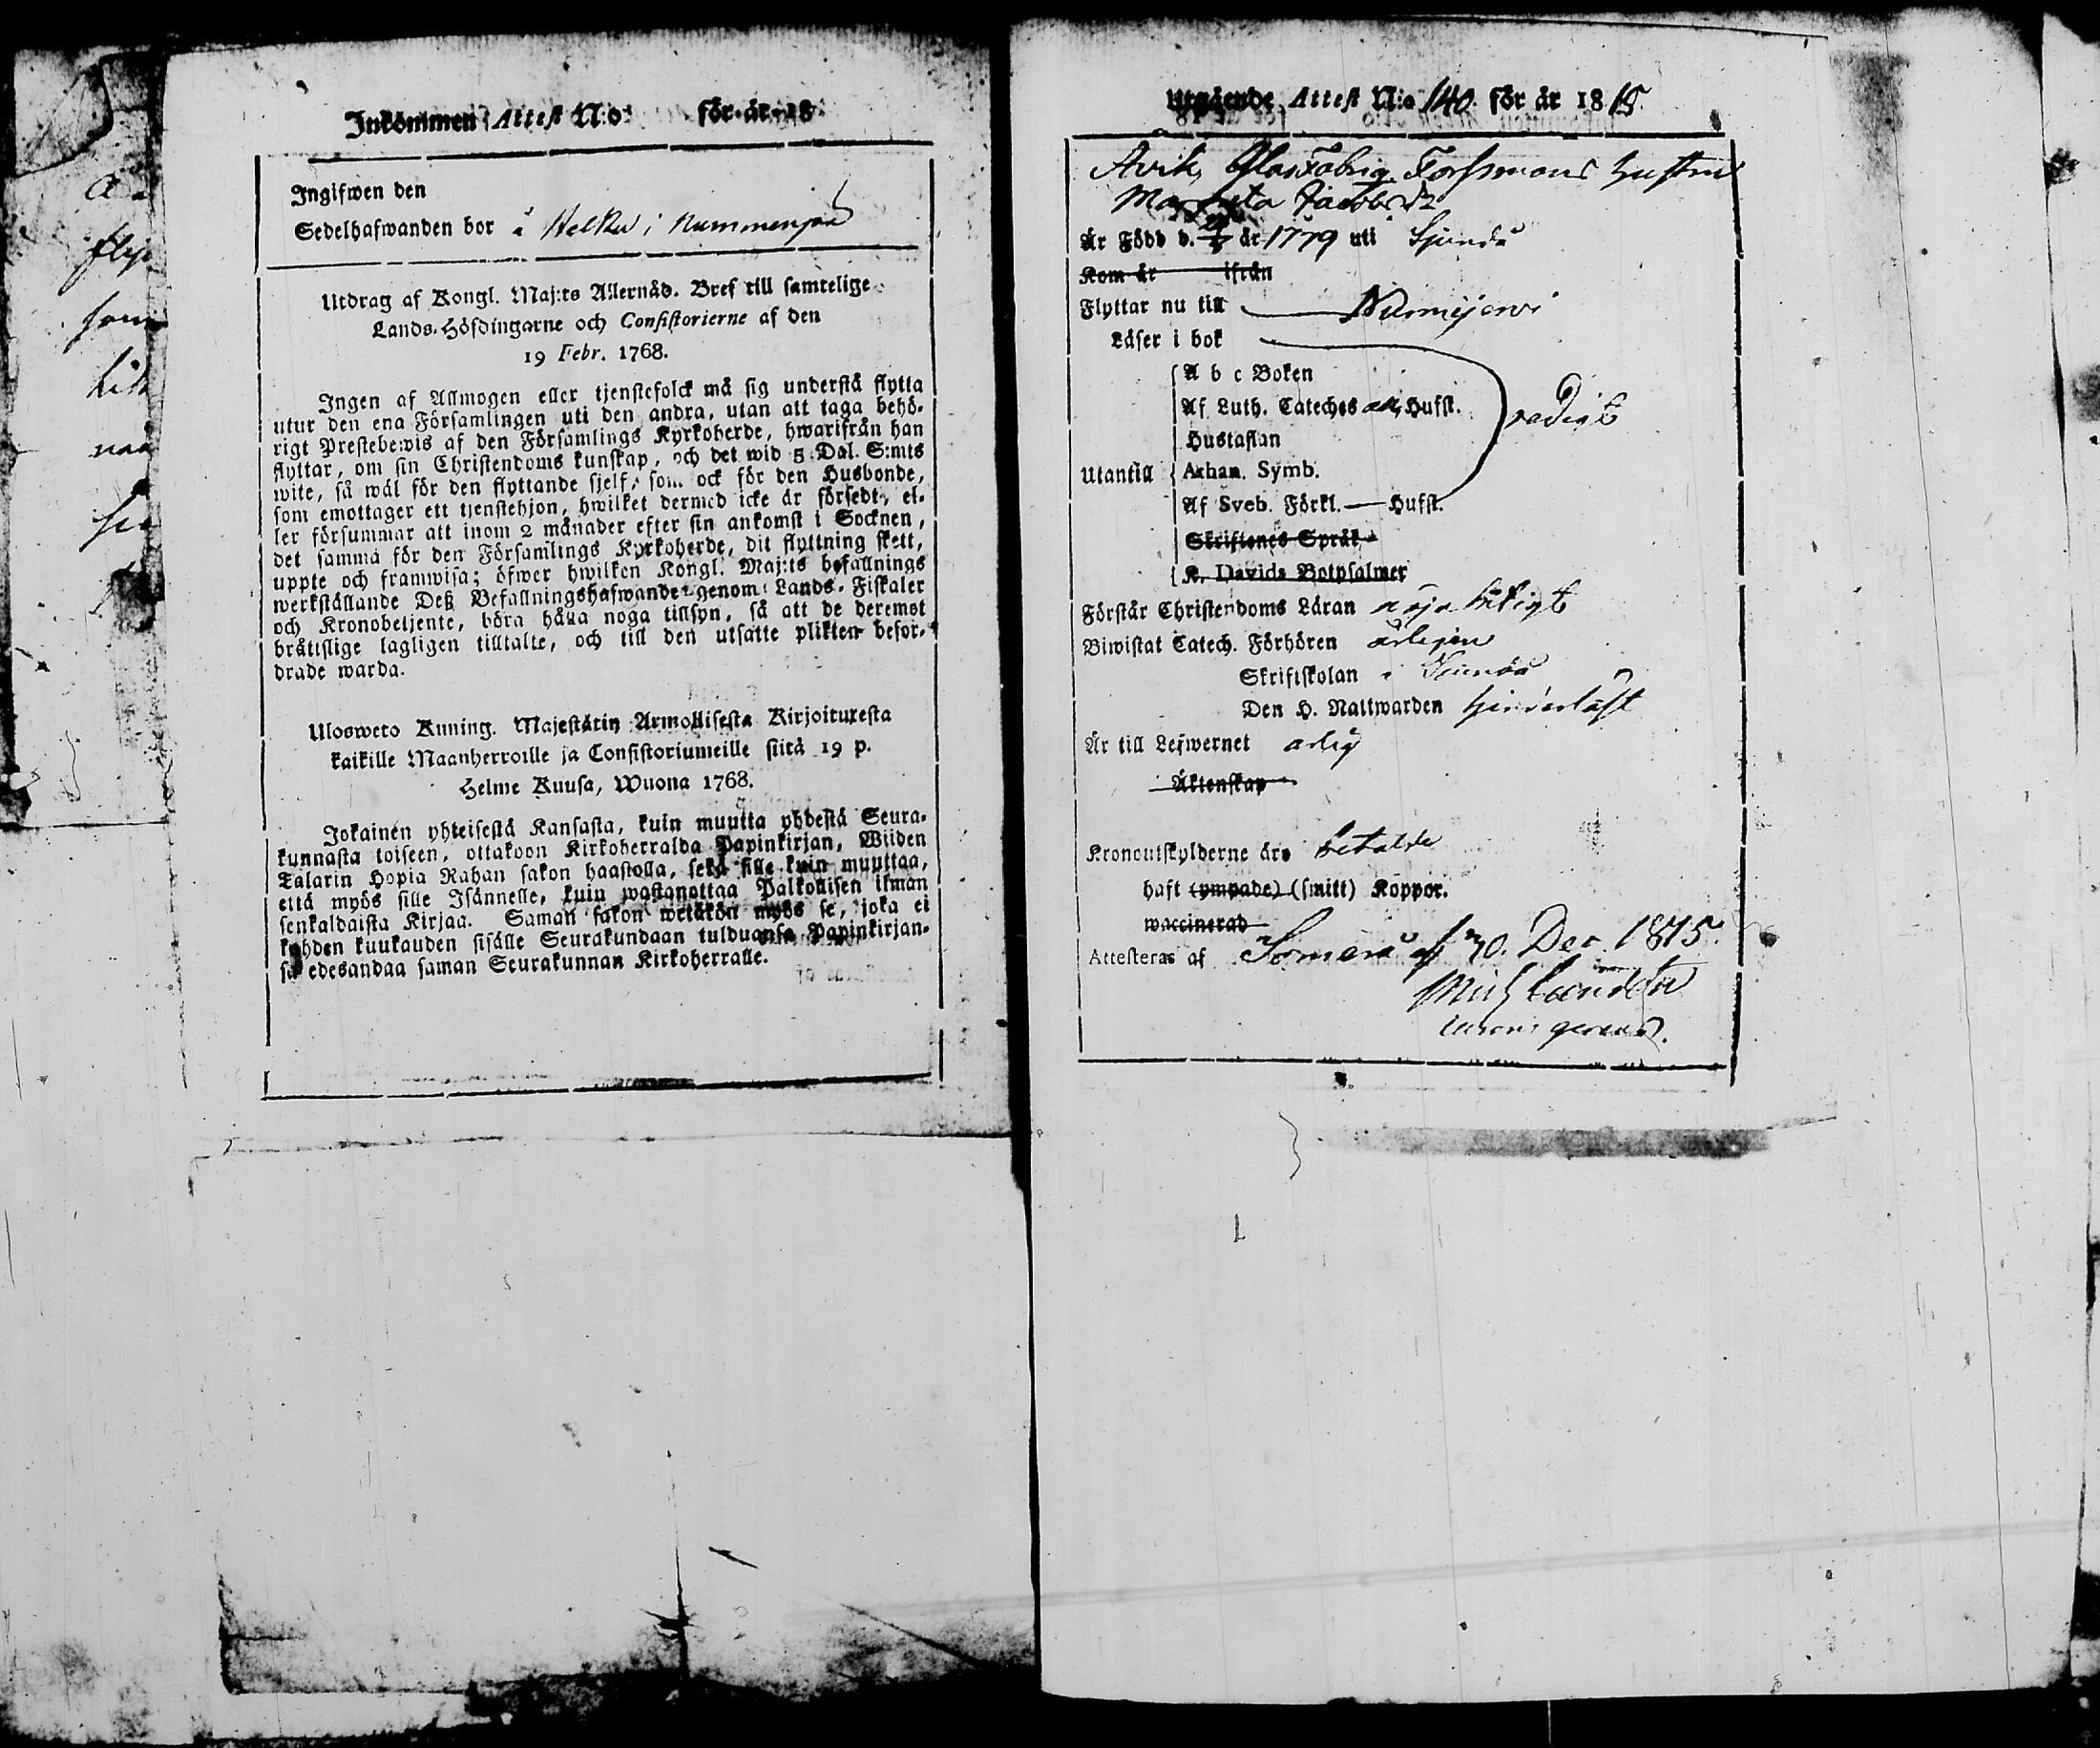 Inkommen Attest N:o för år 18
Ingifwen den
Sedelhafwanden bor å Helku i Nummenpää
Utdrag af Kongl. Maj:ts Allernåd. Bref till samtelige
Lands-Höfdingarne och Consistorierne af den
19 Febr. 1768.
Ingen af Allmogen eller tjenstefolck må sig understå flytta
utur den ena Församlingen uti den andra, utan att taga behö-
rigt Prestebewis af den Församlings Kyrkoherde, hwarifrån han
flyttar, om sin Christendoms kunskap, och det wid 5 Dal. S:mts
wite, så wäl för den flyttande sjelf, som ock för den Husbonde,
som emottager ett tjenstehjon, hwilket dermed icke är försedt, el-
ler försummar att inom 2 månader efter sin ankomst i Socknen,
det samma för den Församlings Kyrkoherde, dit flyttning skett,
uppte och framwisa; öfwer hwilken Kongl. Maj:ts befallnings
werkställande Deß Befallningshafwande genom Lands-Fiskaler
och Kronobetjente, böra hålla noga tillsyn, så att de deremot
bråttslige lagligen tilltalte, och till den utsatte plikten befor-
drade warda.
Ulosweto Kuning. Majestätin Armollisesta Kirjoituxesta
kaikille Maanherroille ja Consistoriumeille siitä 19 p.
Helme Kuusa, Wuona 1768.
Jokainen yhteisestä Kansasta, kuin muutta yhdestä Seura-
kunnasta toiseen, ottakoon Kirkoherralda Papinkirjan, Wiiden
Talarin Hopia Rahan sakon haastolla, sekä sille kuin muuttaa,
että myös sille Isännelle, kuin wastanottaa Palkollisen ilman
senkaldaista Kirjaa. Saman sakon wetäkön myös se, joka ei
kahden kuukauden sisälle Seurakundaan tulduansa Papinkirjan-
sa edesandaa saman Seurakunnan Kirkoherralle.
Utgående Attest N:o 140. för år 1815.
Avik, Glasfabriq. Forssmans hustru
Margreta Jacobsdr
Är Född d. år 1779 uti Sjundå
Kom år ifrån
Flyttar nu till Nurmijervi
Läser i bok
A b c Boken
Af Luth. Cateches all Husst. redigt
Hustaflan
Utantill Athan. Symb.
Af Sveb. Förkl. Husst.
Skriftenes Språk
K. Davids Botpsalmer
Förstår Christendoms Läran nöjaktigt
Biwistat Catech. Förhören årligen
Skriftskolan i Sjundå
Den H. Nattwarden hinderlöst
Är till Lefwernet ärlig
Äktenskap
Kronoutskylderne äro betalde
haft (ympade) (smitt) Koppor.
waccinerad
Attesteras af Somero d. 30. Dec. 1815.
Mich Lundén
curam gerens.